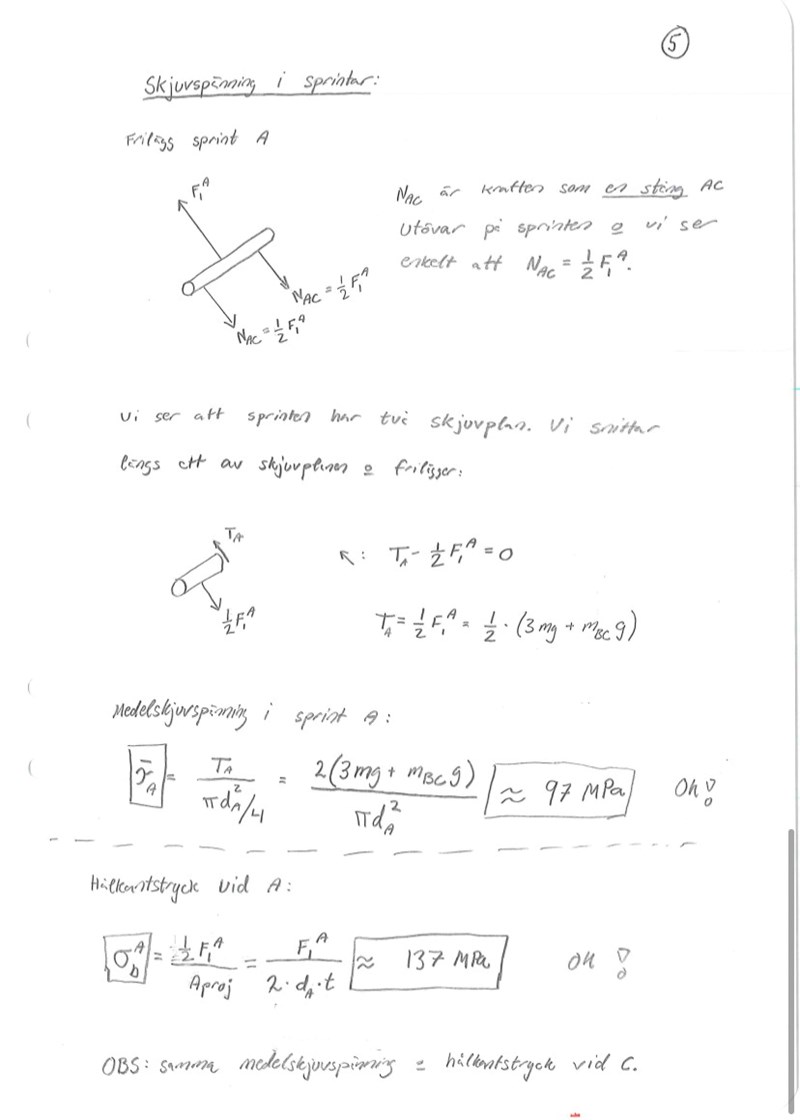 5
Skjuvspänning i sprintar:
Friläggs sprint A
F₁ᴬ
N_AC är kraften som en stång AC
utövar på sprinten o vi ser
enkelt att N_AC = ½ F₁ᴬ.
N_AC = ½ F₁ᴬ
N_AC = ½ F₁ᴬ
Vi ser att sprinten har två skjuvplan. Vi snittar
längs ett av skjuvplanen o frilägger:
T_A
↖: T_A - ½ F₁ᴬ = 0
½ F₁ᴬ
T_A = ½ F₁ᴬ = ½ · (3mg + m_BC g)
Medelskjuvspänning i sprint A:
τ̄_A = T_A / (πd_A²/4) = 2(3mg + m_BC g) / (πd_A²) ≈ 97 MPa Ok!
Hålkantstryck vid A:
σ_b^A = ½ F₁ᴬ / Aproj = F₁ᴬ / (2·d_A·t) ≈ 137 MPa Ok!
OBS: samma medelskjuvspänning o hålkantstryck vid C.